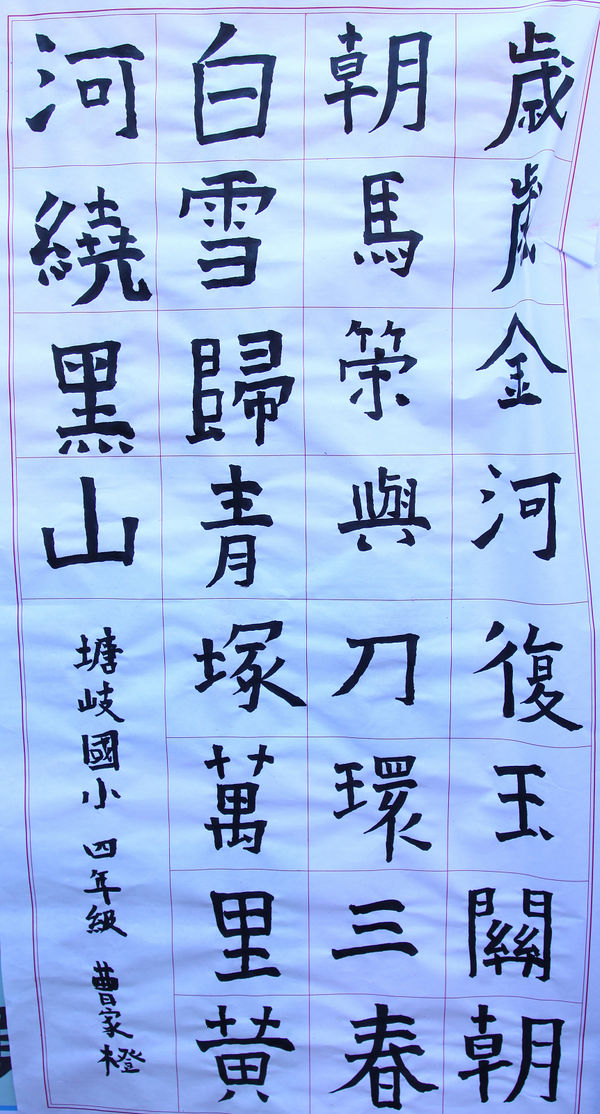 歲歲金河復玉關朝
朝馬策與刀環三春
白雪歸青塚萬里黃
河繞黑山
塘岐國小 四年級 曹家橙